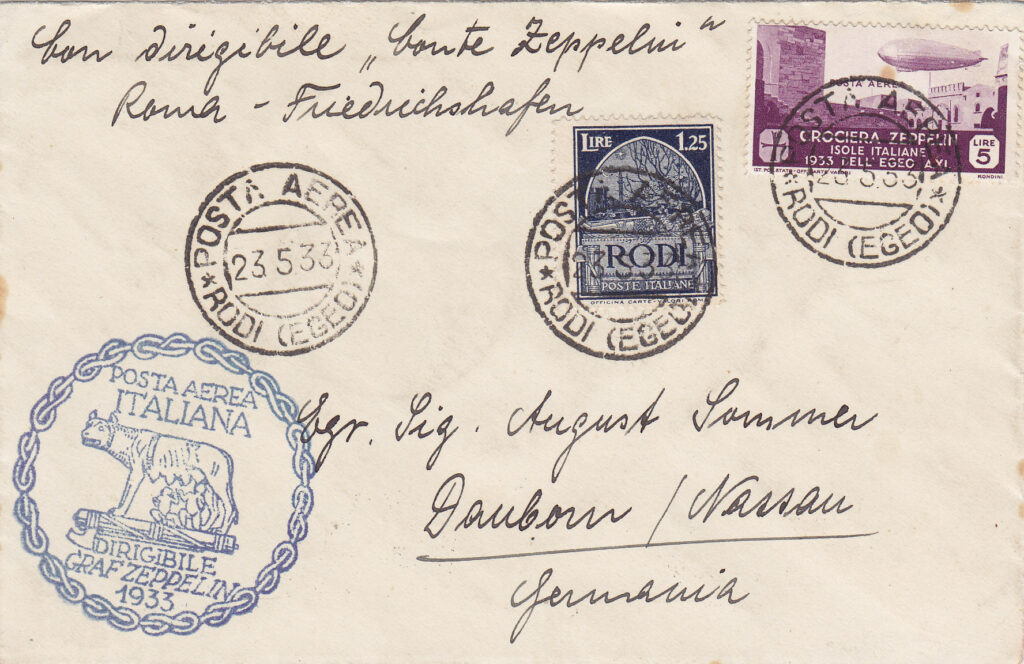 Con dirigibile „Conte Zeppelin"
Roma - Friedrichshafen
POSTA AEREA
CROCIERA ZEPPELIN
ISOLE ITALIANE
1933 DELL'EGEO A.XI
LIRE
5
RONDINI
POSTA AEREA
23.5.33
RODI (EGEO)
LIRE 1.25
RODI
POSTE ITALIANE
OFFICINA CARTE-VALORI
POSTA AEREA
23.5.33
* RODI (EGEO) *
POSTA AEREA
23.5.33
* RODI (EGEO) *
POSTA AEREA
ITALIANA
DIRIGIBILE
GRAF ZEPPELIN
1933
Egr. Sig. August Sommer
Dauborn / Nassau
Germania